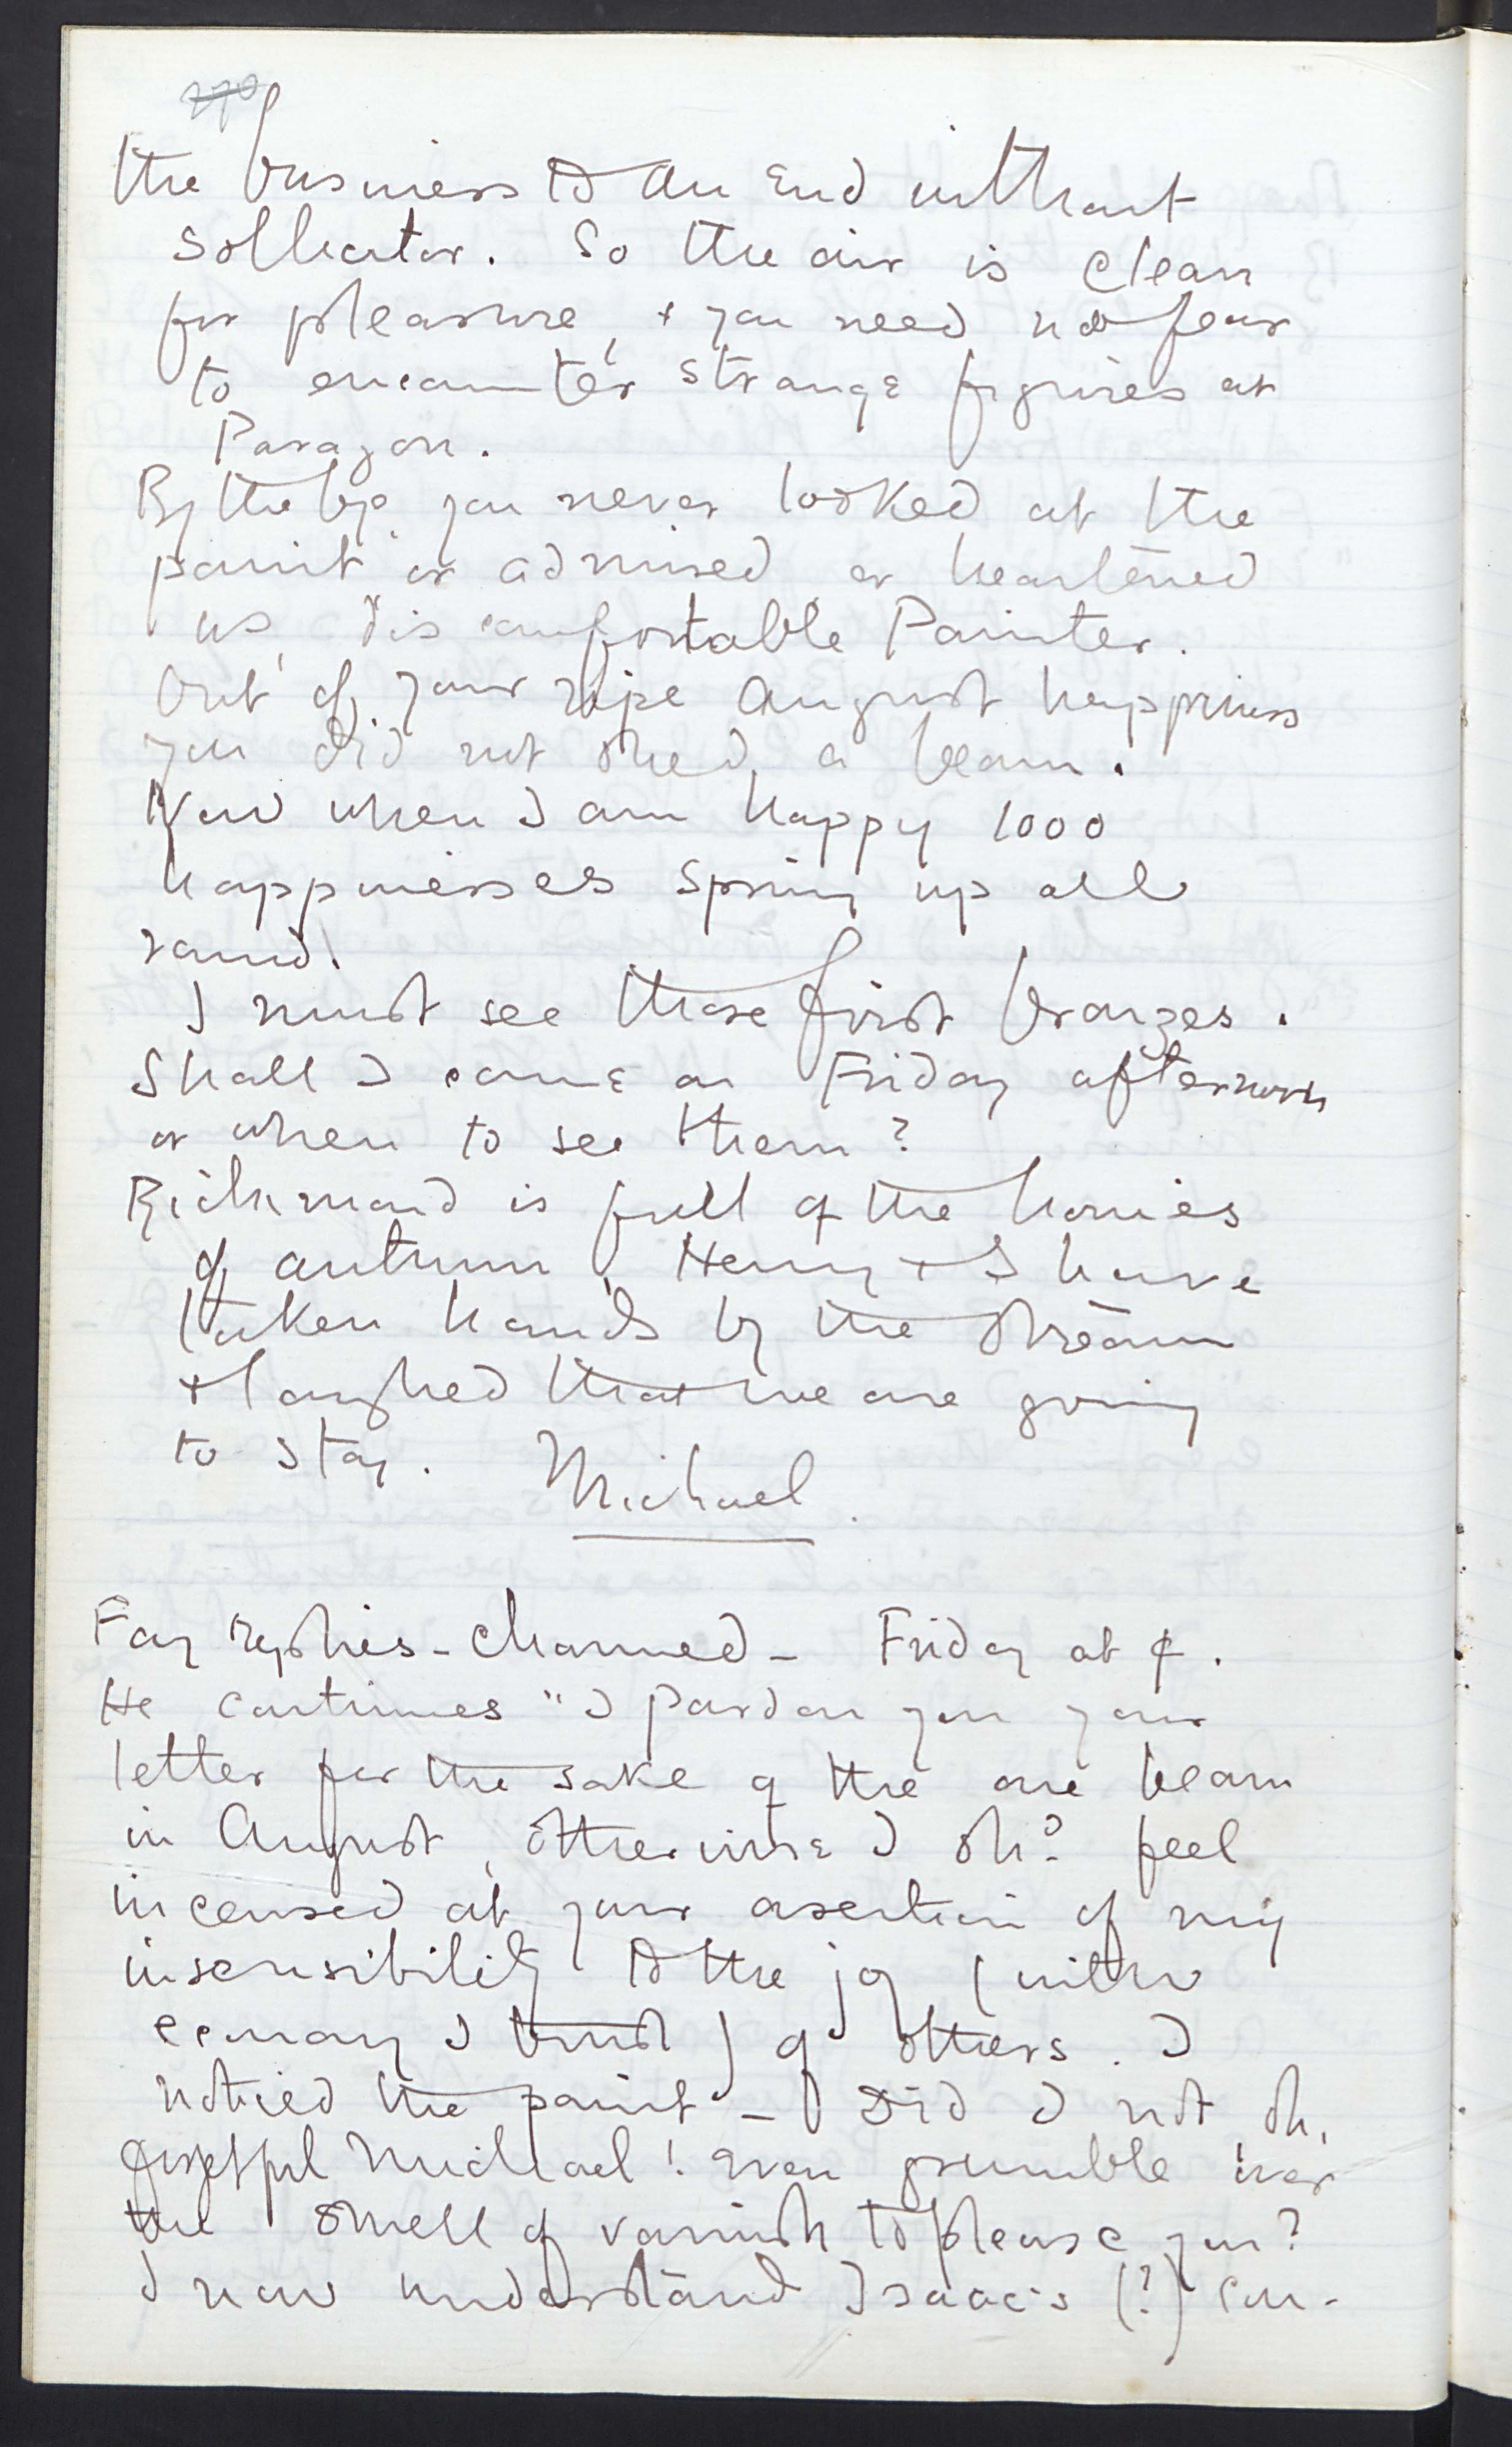 270
the business to an end without
sollicitor. So the air is clear
for pleasure, & you need not fear
to encounter strange figures at
Paragon.
By the bye you never looked at the
paint or admired or heartened
us, discomfortable Painter.
Out of your ripe August happiness
you did not shed a beam.
Now when I am happy 1000
happinesses spring up all
round.
I must see those first bronzes.
Shall I come on Friday afternoon
or when to see them?
Richmond is full of the honies
of autumn, Henry & I have
taken hands by the stream
& laughed that we are going
to stay. Michael.
Fay replies - Charmed - Friday at 4.
He continues "I pardon you your
letter for the sake of the one beam
in August, otherwise I shd feel
incensed at your assertion of my
insensibility to the joy (with
economy I trust) of others. I
noticed the paint - Did I not, oh,
forgetful Michael! even grumble over
the smell of varnish to please you?
I now understand Isaac's (?) con-